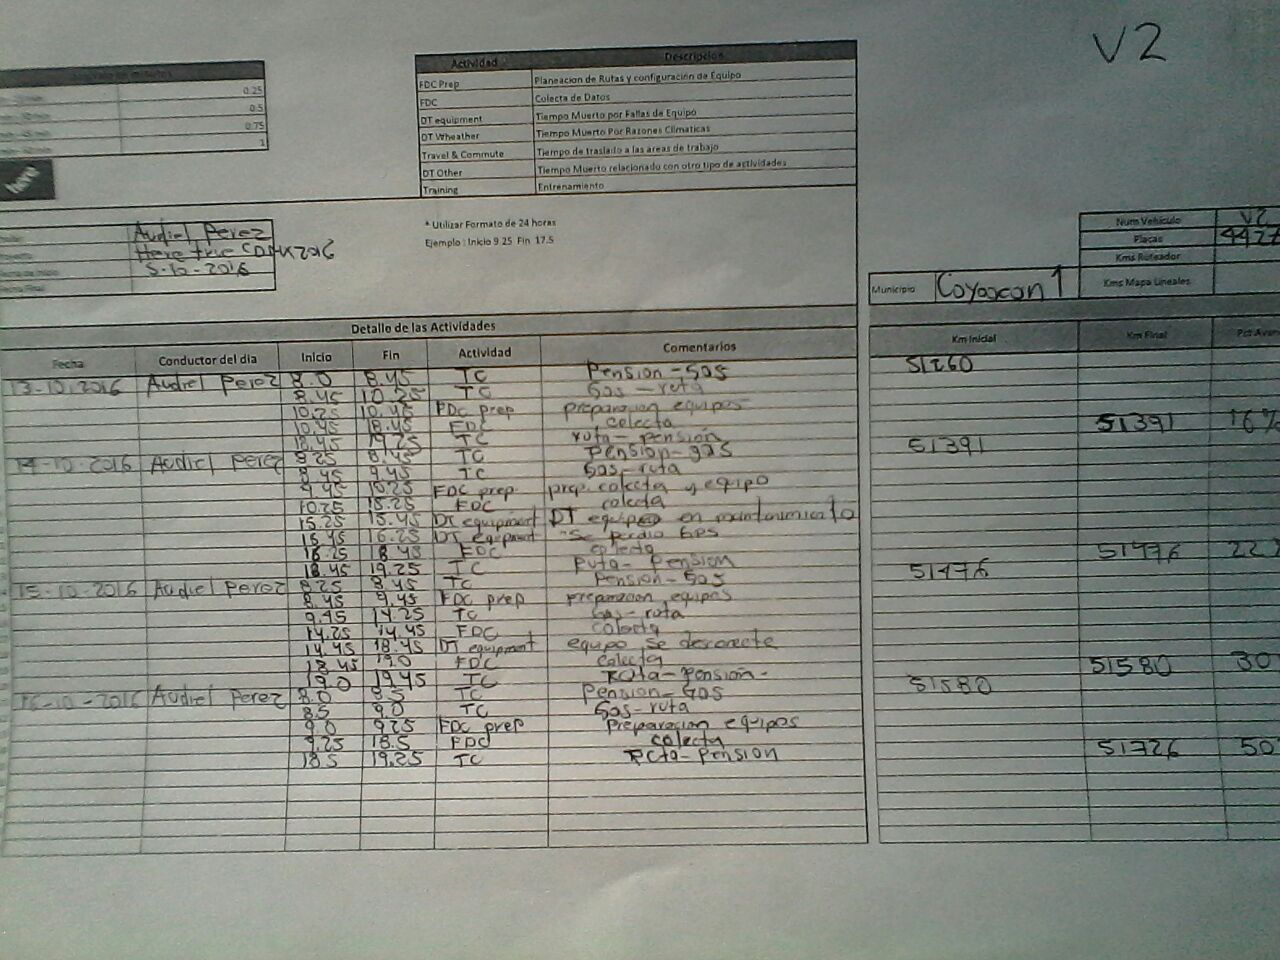 V2
0.25
0.5
0.75
1
Actividad Descripcion
FDC Prep Planeacion de Rutas y configuración de Equipo
FDC Colecta de Datos
DT equipment Tiempo Muerto por Fallas de Equipo
DT Wheather Tiempo Muerto Por Razones Climaticas
Travel & Commute Tiempo de traslado a las áreas de trabajo
DT Other Tiempo Muerto relacionado con otro tipo de actividades
Training Entrenamiento
here
* Utilizar Formato de 24 horas
Ejemplo : Inicio 9.25 Fin 17.5
Audiel Perez
Here true 2016
5-10-2016
Num Vehículo V2
Placas 4427
Kms Ruteador
Municipio Coyoacan 1 Kms Mapa Lineales
Detalle de las Actividades
Fecha Conductor del dia Inicio Fin Actividad Comentarios Km Inicial Km Final Pct
13-10-2016 Audiel Perez 8.0 8.45 TC Pension-Gas 51260
8.45 10.25 TC Gas-ruta
10.25 10.45 FDC prep preparacion equipos
10.45 18.45 FDC colecta 51391 16%
18.45 19.25 TC ruta-pensión 51391
14-10-2016 Audiel Perez 8.25 8.45 TC Pension-gas
8.45 9.45 TC Gas-ruta
9.45 10.25 FDC prep prep. colecta y equipo
10.25 15.25 FDC colecta
15.25 15.45 DT equipment DT equipo en mantenimiento
15.45 16.25 DT equipment "Se perdio GPS
16.25 18.45 FDC colecta 51476 22
18.45 19.25 TC Ruta-Pension 51476
15-10-2016 Audiel Perez 8.25 8.45 TC Pension-Gas
8.45 9.45 FDC prep preparacion equipos
9.45 14.25 TC Gas-ruta
14.25 14.45 FDC colecta
14.45 18.45 DT equipment equipo se desconecte
18.45 19.0 FDC colecta 51580 30
19.0 19.45 TC Ruta-Pensión- 51580
16-10-2016 Audiel Perez 8.0 8.5 TC Pension-Gas
8.5 9.0 TC Gas-ruta
9.0 9.25 FDC prep Preparacion equipos
9.25 18.5 FDC colecta 51726 50
18.5 19.25 TC Ruta-Pension